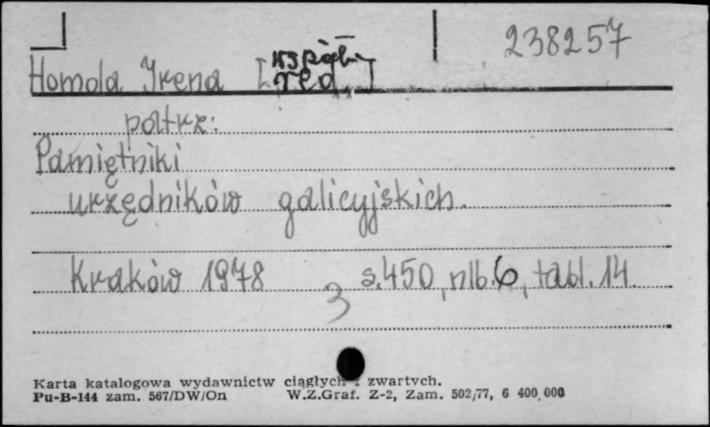 238257
Homola Irena [współ. red.]
patrz:
Pamiętniki
urzędników galicyjskich.
Kraków 1978 s. 450, nlb. 6, tabl. 14.
3
Karta katalogowa wydawnictw ciągłych i zwartych.
Pu-B-144 zam. 567/DW/On W.Z.Graf. Z-2, Zam. 502/77, 6 400 000